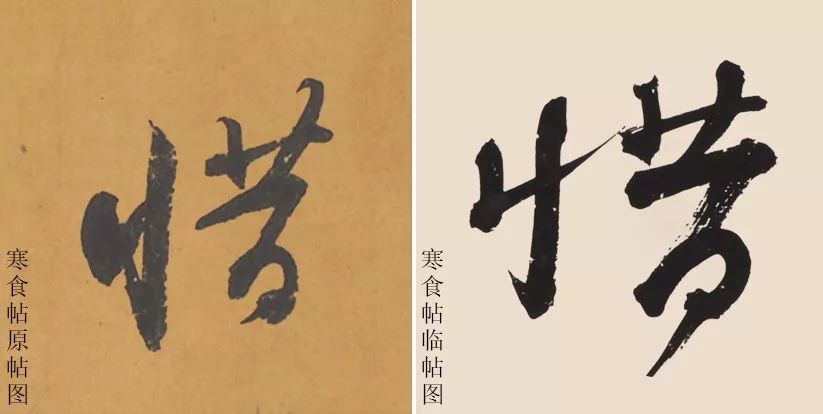 惜
寒食帖原帖图
惜
寒食帖临帖图